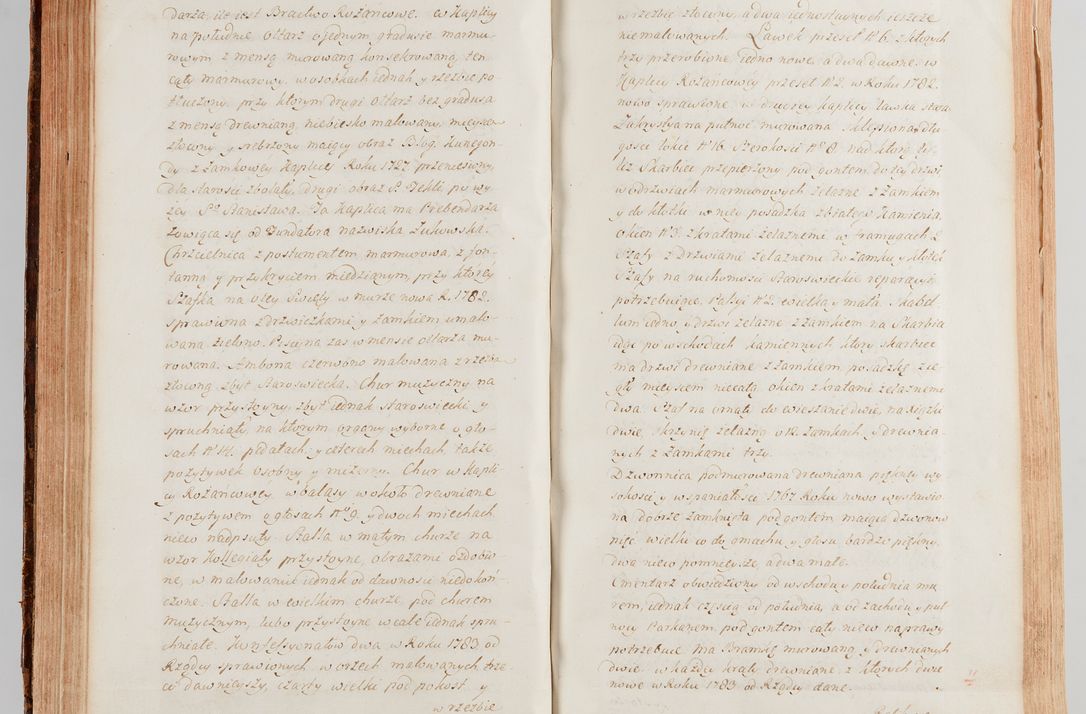 darza, ile jest Bractwo Rożańcowe. w Kaplicy
na południe ołtarz o jednym gradusie marmu-
rowym z mensą murowaną konsekrowaną, ten
cały marmurowy, w osobkach jednak y rzeźbie po
tłuczony, przy ktorym drugi ołtarz bez gradusa
z mensą drewnianą, niebiesko malowany, mieysca
złocony y srebrzony maiący obraz Błog. Kunegon-
dy z Zamkowey Kaplicy Roku 1787 przeniesiony,
dla starosci zbotały, drugi obraz S. Tekli po wy
żey S. Stanisława. Ta Kaplica ma Prebendarza
zowiąca się od Fundatora nazwiska Łukowska.
Chrzcielnica z postumentem, marmurowa, z fon-
tanną y przykryciem miedzianym, przy ktorey
Szafka na Oley Swięty w murze nowa R. 1782.
sprawiona z drzwiczkami y zamkiem umalo-
wana zielono. Piscyna zas w mensie ołtarza mu-
rowana. Ambona czerwono malowana z rzezbą
złoconą zbyt staroswiecka. Chur muzyczny na
wzor przystoyny, zbyt jednak staroswiecki y
spruchniały, na ktorym organy wyborne o gło-
sach No 14. pedałach, y czterech miechach, także
pozytywek osobny y mizerny. Chur w Kapli-
cy Rożancowey, w balasy w około drewniane
z pozytywem o głosach No 9. y dwoch miechach,
nieco nadpsuty. Stalla w małym churze na
wzor Kollegiaty przystoyne, obrazami ozdobio-
ne, w malowaniu jednak od dawnosci niedokoń-
czone. Stalla w wielkim churze, pod churem
muzycznym, lubo przystoyne wcale jednak spru-
chniałe. Konfessyonałow dwa w Roku 1783 od
Rządcy sprawionych, w orzech malowanych, trze-
ci dawnieyszy, czarty wielki pod pokost y
w rzezbie
w rzezbie złocony, a dwa jednostaynych jeszcze
niemalowanych. Ławek przeseł No 6. z ktorych
trzy przerobione, jedno nowe, a dwa dawne, w
Kaplicy Rożancowey przeseł No 2. w Roku 1782.
nowo sprawione, w drugiey Kaplicy ławka stara.
Zakrystya na pułnoc murowana, sklepiona, dłu-
gosci łokci No 16. Szerokosci No 8. nad ktorą tu-
też Skarbiec przepierzony pod gontem, do tey drzwi
w odrzwiach marmurowych żelazne z zamkiem
y do kłotki w niey posadzka z białego Kamienia,
okien No 3. z kratami żelaznemi, w framugach 2.
Szafy z drzwiami żelaznemi do zamku y kłotki
Szafy na ruchomosci staroswieckie reparacyi
potrzebuiące. Pasyi No 2. wielka y mała. Skabel
lum jedno, drzwi żelazne z zamkiem na Skarbiec
idąc po wschodach kamiennych, ktory skarbiec
ma drzwi drewniane z zamkiem posadzkę z ce
gły mieyscem niecałą, okien z kratami żelaznemi
dwa. Szaf na ornaty do wieszanie dwie, na xiązki
dwie, skrzynię żelazną o 12. zamkach, y drewnia-
nych z zamkami trzy.
Dzwonnica podmurowana drewniana piękney wy
sokosci y wspaniałosci 1767 Roku nowo wystawio
na dobrze zamknięta pod gontem maiąca dzwonow
pięć wielki co do gmachu y głosu bardzo piękny,
dwa nieco pomnieysze, a dwa małe.
Cmentarz obwiedziony od wschodu y południa mu
rem, jednak częscią od południa, a od zachodu y puł
nocy Parkanem pod gontem cały nieco naprawy
potrzebuie, ma Bramkę murowaną, y drewnianych
dwie, w każdey kraty drewniane, z ktorych dwie
nowe w Roku 1783 od Rządcy dane.